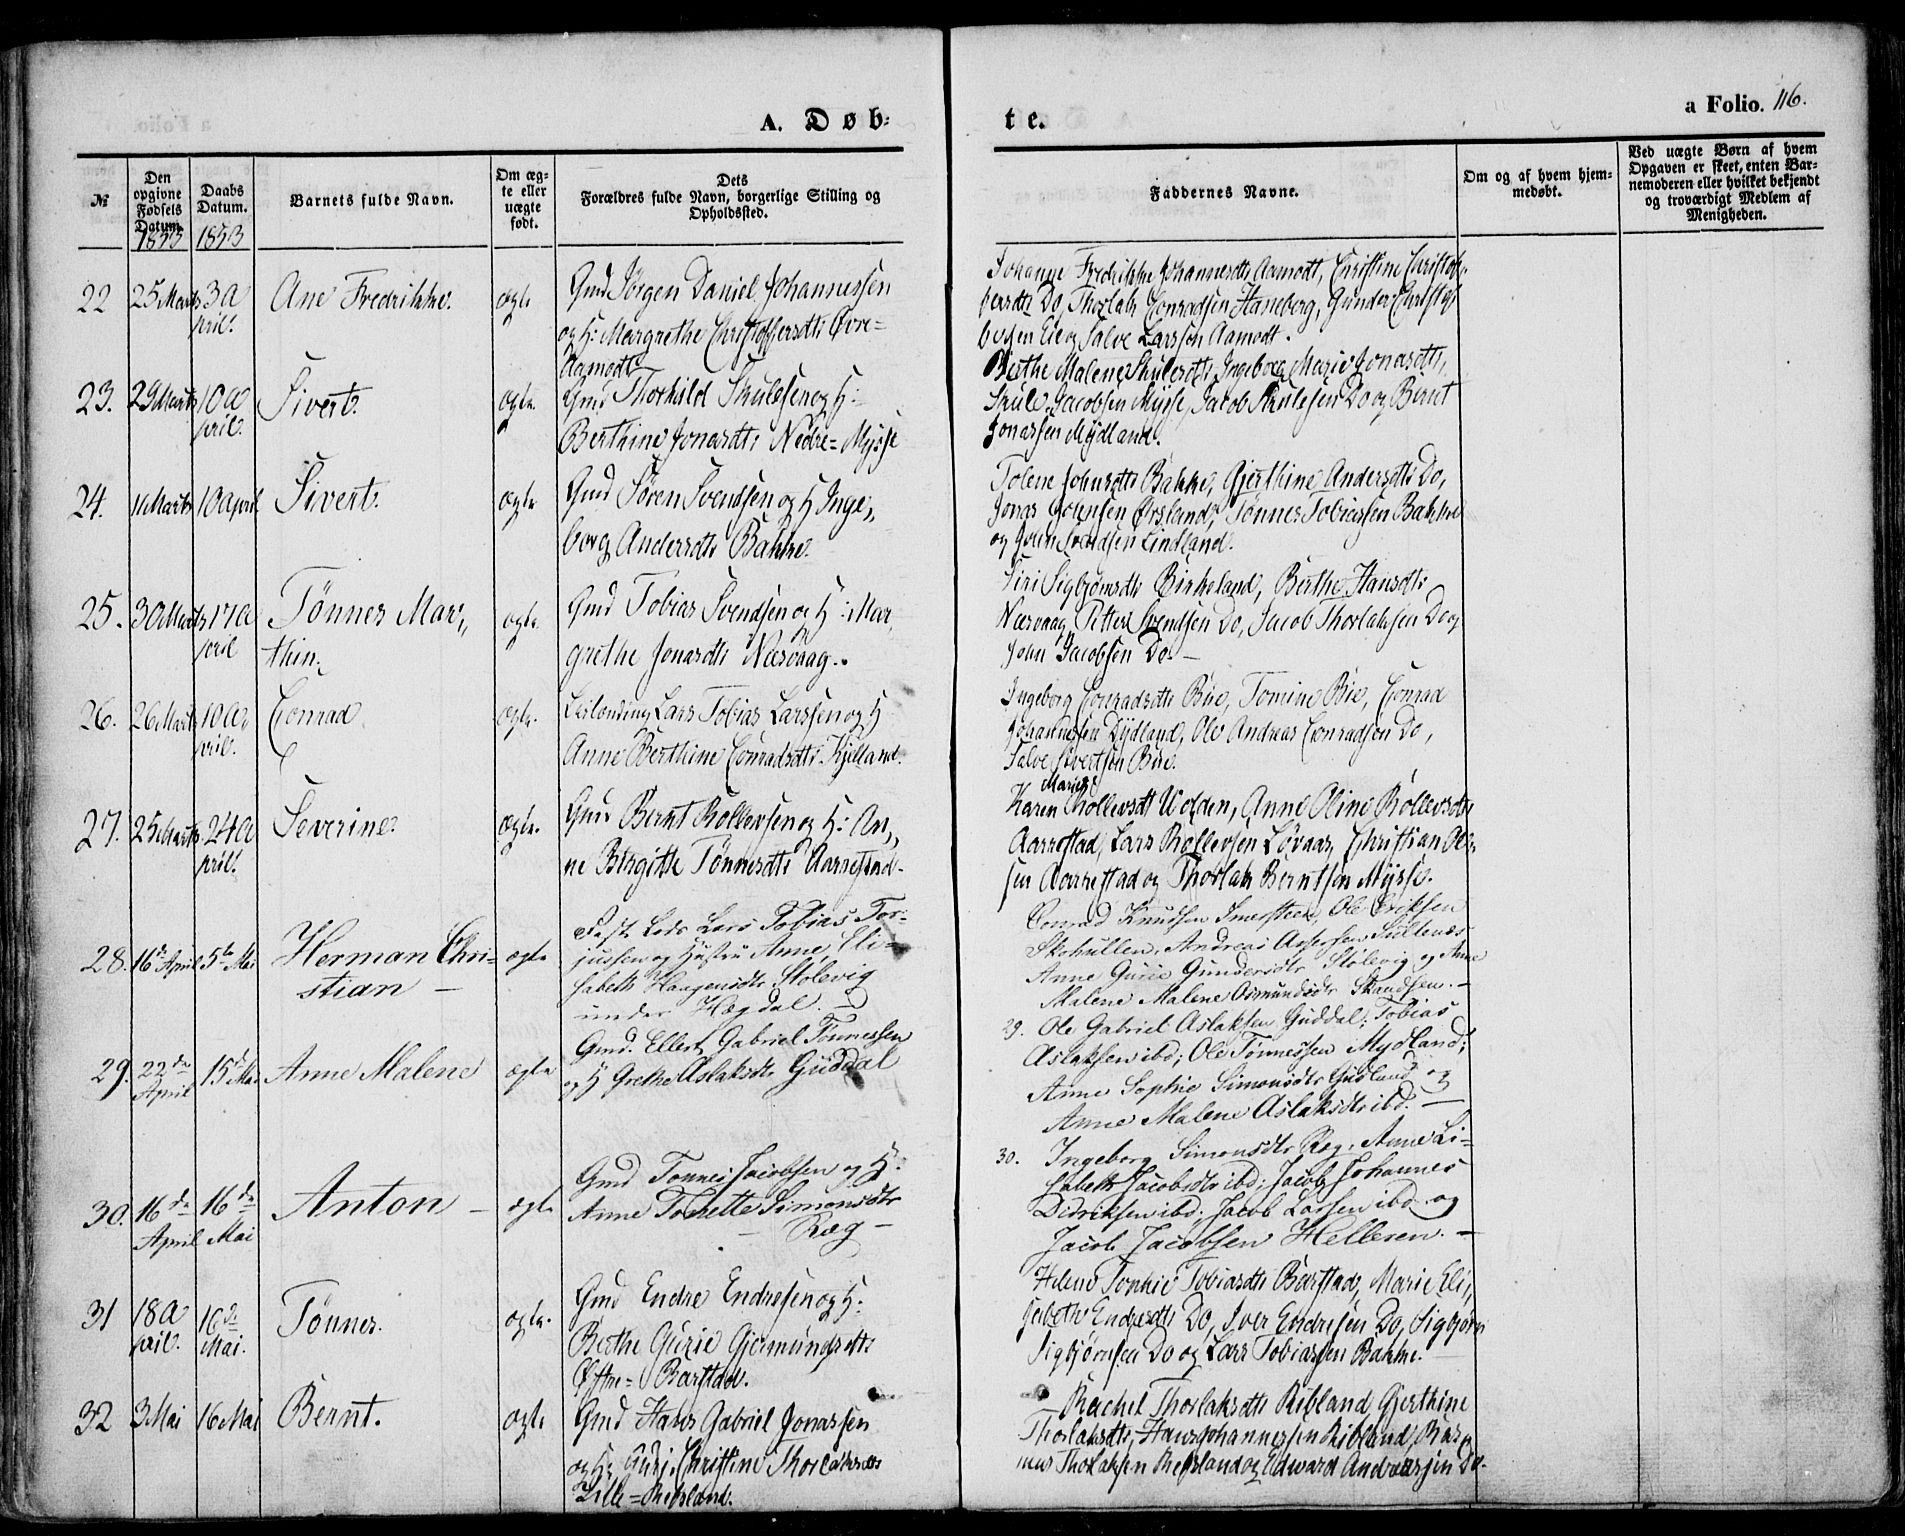 A. Døb=
te.
a Folio. 116.
№
Den opgivne Fødsels Datum.
1853
Daabs Datum.
1853
Barnets fulde Navn.
Om æg-
te eller
uægte
født.
Dets
Forældres fulde Navn, borgerlige Stilling og
Opholdssted.
Faddernes Navne.
Om og af hvem hjem-
medøbt.
Ved uægte Børn af hvem
Opgaven er skeet, enten Bar-
nemoderen eller hvilket bekjendt
og troværdigt Medlem af
Menigheden.
22 25 Marts 3 A
pril.
Ane Fredrikke. ægte
Gmd Jørgen Daniel Johannessen
og H: Margrethe Christoffersdtr Øvre=
Aamodt
Johanne Fredrikke Johannesdtr Aamodt, Christine Christof-
fersdtr Do, Thorlak Conradsen Haneberg, Gunder Christof
fersen Eie og Salve Larssøn Aamodt.
23. 29 Marts 10 A
pril.
Sivert. ægte.
Gmd Thorkild Skulesen og H:
Berthine Jonasdtr Nedre=Mysse
Berthe Malene Skulesdtr, Ingeborg Marie Jonasdtr,
Skule Jacobsen Mysse, Jacob Skulesen Do og Bernt
Jonassen Mydland.
24. 11 Marts 10 April
Sivert. ægte
Gmd Søren Svendsen og H Inge„
borg Andersdtr Bakke.
Tolene Johnsdtr Bakke, Gjerthine Andersdtr Do,
Jonas Ørsland, Tønnes Tobiassen Bakke
og Svendsen Lindland.
25. 30 Marts 17 A
pril
Tønnes Mar„
thin. ægte.
Gmd Tobias Svendsen og H: Mar„
grethe Jonasdtr Næsvaag.
Siri Sigbjørnsdtr Birkeland, Berthe Hansdtr
Næsvaag, Petter Svendsen Do, Jacob Thorlaksen Do og
John Jacobsen Do. —
26. 26 Marts 10 A
pril.
Conrad ægte.
Lars Tobias Larssen og H
Anne Berthine Conradsdtr Kjelland.
Ingeborg Conradsdtr Bie, Tomine Bie, Conrad
Johannessen Dydland, Ole Andreas Conradsen Do,
Salve Sivertsen Bie.
27. 25 Marts 24 A
pril.
Severine. ægte.
Gmd Bernt Rollevsen og H: An„
ne Birgitte Tønnesdtr Aarrestad.
Marie
Karen Rollevsdt Wolden, Anne Oline Rollevsdtr
Aarrestad, Lars Rollevsen Løvaas, Christian Ol„
sen Aarrestad og Thorlak Berntsen Mysse.
28. 16de April 5te Mai
Herman Chri-
stian — ægte
Lods Lars Tobias Ter-
jussen og Hustru Anne Eli-
sabeth Haagensdtr Stølevig
under Hægdal.
Conrad Knudsen, Ole Eriksen
Skohullen, Andreas Assersen,
Anne Gurie Gundersdtr Stølevig og Anne
Malene Malene Osmundsdtr. —
29. 22de
April 15de Mai
Anne Malene ægte
Gmd. Ellert Gabriel Tønnessen
og H Grethe Aslaksdtr Guddal
29. Ole Gabriel Aslaksen Guddal; Tobias
Aslaksen ibd; Ole Tønnessen Mydland;
Anne Sophie Simonsdtr Gudland og
Anne Malene Aslaksdtr ibd. —
30. 16de
April 16de
Mai
Anton — ægte
Gmd Tønnes Jacobsen og H:
Anne Tonette Simonsdtr
— Ræg —
30. Ingeborg Simonsdtr Ræg, Anne Li-
sabeth Jacobsdtr ibd; Jacob Johannes
Didriksen ibd; Jacob Larsen ibd og
Jacob Jacobsen Helleren. —
31 18 A
pril. 16de
Mai.
Tønnes. ægte.
Gmd Endre Endresen og H:
Berthe Gurie Gjermundsdtr
Øfre=Barstad.
Helene Sophie Tobiasdtr Barstad, Marie Eli„
sabeth Endresdtr Do, Iver Endresen Do, Sigbjørn
Sigbjørnsen Do og Lars Tobiassen Bakke.
32 3 Mai 16 Mai
Bernt. ægte
Gmd Hans Gabriel Jonassen
og H: Guri Christine Thorlaksdtr
Lille=Refsland.
Rachel Thorlaksdtr Ribland Gjerthine
Thorlaksdtr, Hans Johannessen Ribland, Ras
mus Thorlaksen Refsland og Edward Andreassen Do.